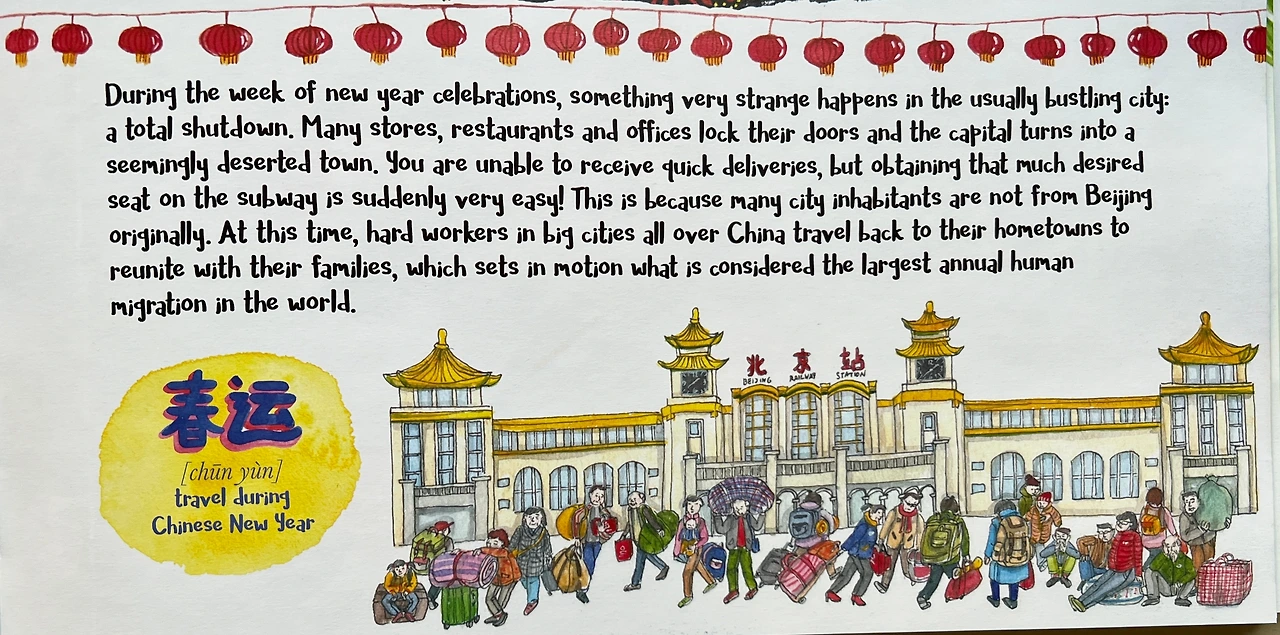 During the week of new year celebrations, something very strange happens in the usually bustling city:
a total shutdown. Many stores, restaurants and offices lock their doors and the capital turns into a
seemingly deserted town. You are unable to receive quick deliveries, but obtaining that much desired
seat on the subway is suddenly very easy! This is because many city inhabitants are not from Beijing
originally. At this time, hard workers in big cities all over China travel back to their hometowns to
reunite with their families, which sets in motion what is considered the largest annual human
migration in the world.
北 京 站
BEIJING RAILWAY STATION
春运
[chūn yùn]
travel during
Chinese New Year